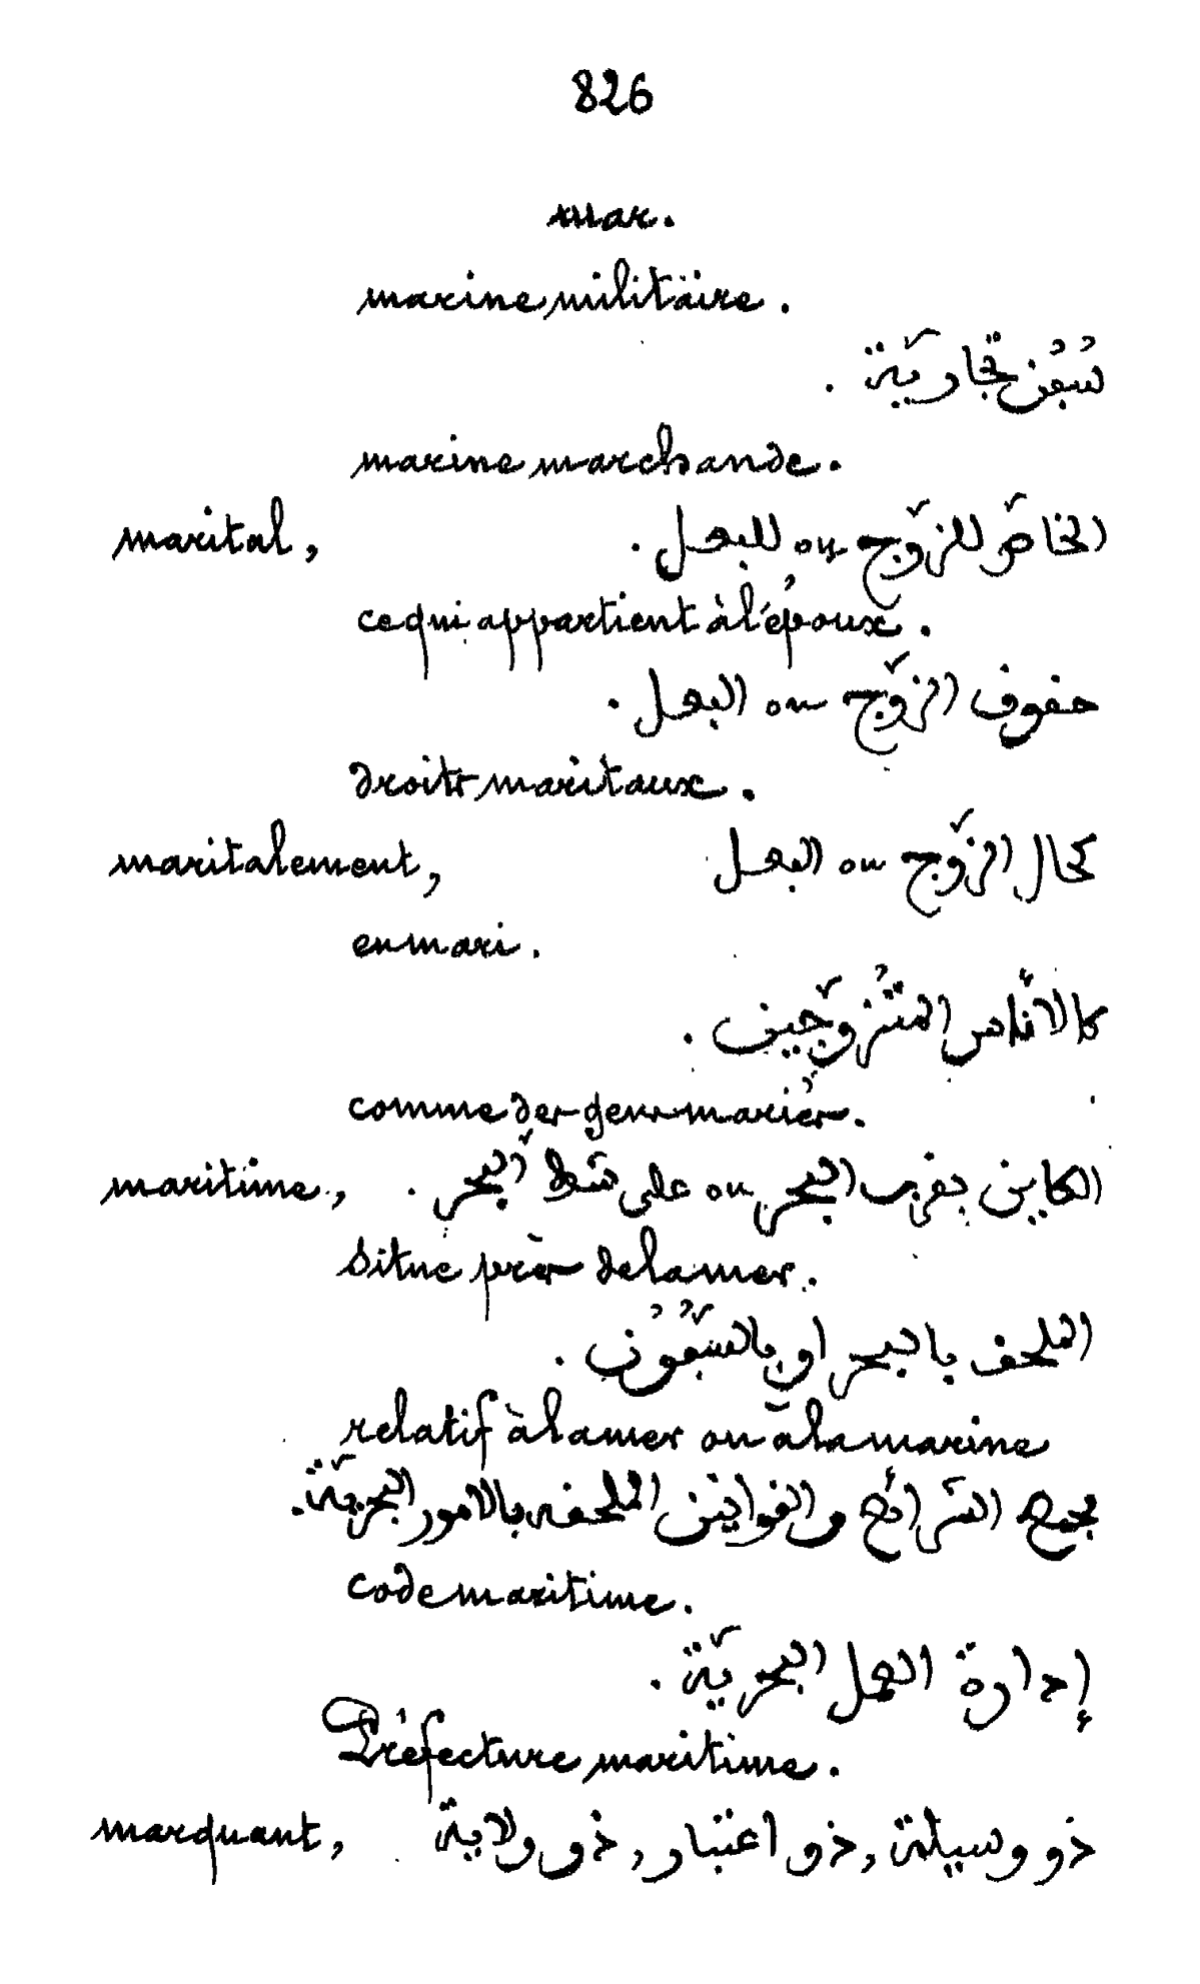 826
mar.
marine militaire.
سُبُن تجاريّة .
marine marchande.
marital, الخاصّ للزّوج ou للبعل .
ce qui appartient à l'époux.
حقوق الزّوج ou البعل .
droits maritaux.
maritalement, كحال الزّوج ou البعل
en mari.
كالأناس المتزوّجين .
comme des gens mariés.
maritime, الكاين بقرب البحر ou على شطّ البحر .
situé près de la mer.
الملحق بالبحر او بالسّفُون .
relatif à la mer ou à la marine
مجمع الشرائع والقوانين الملحقة بالامور البحريّة.
code maritime.
إدارة العمل البحريّة .
Préfecture maritime.
marquant, ذو وسيلة, ذو اعتبار, ذو ولاية